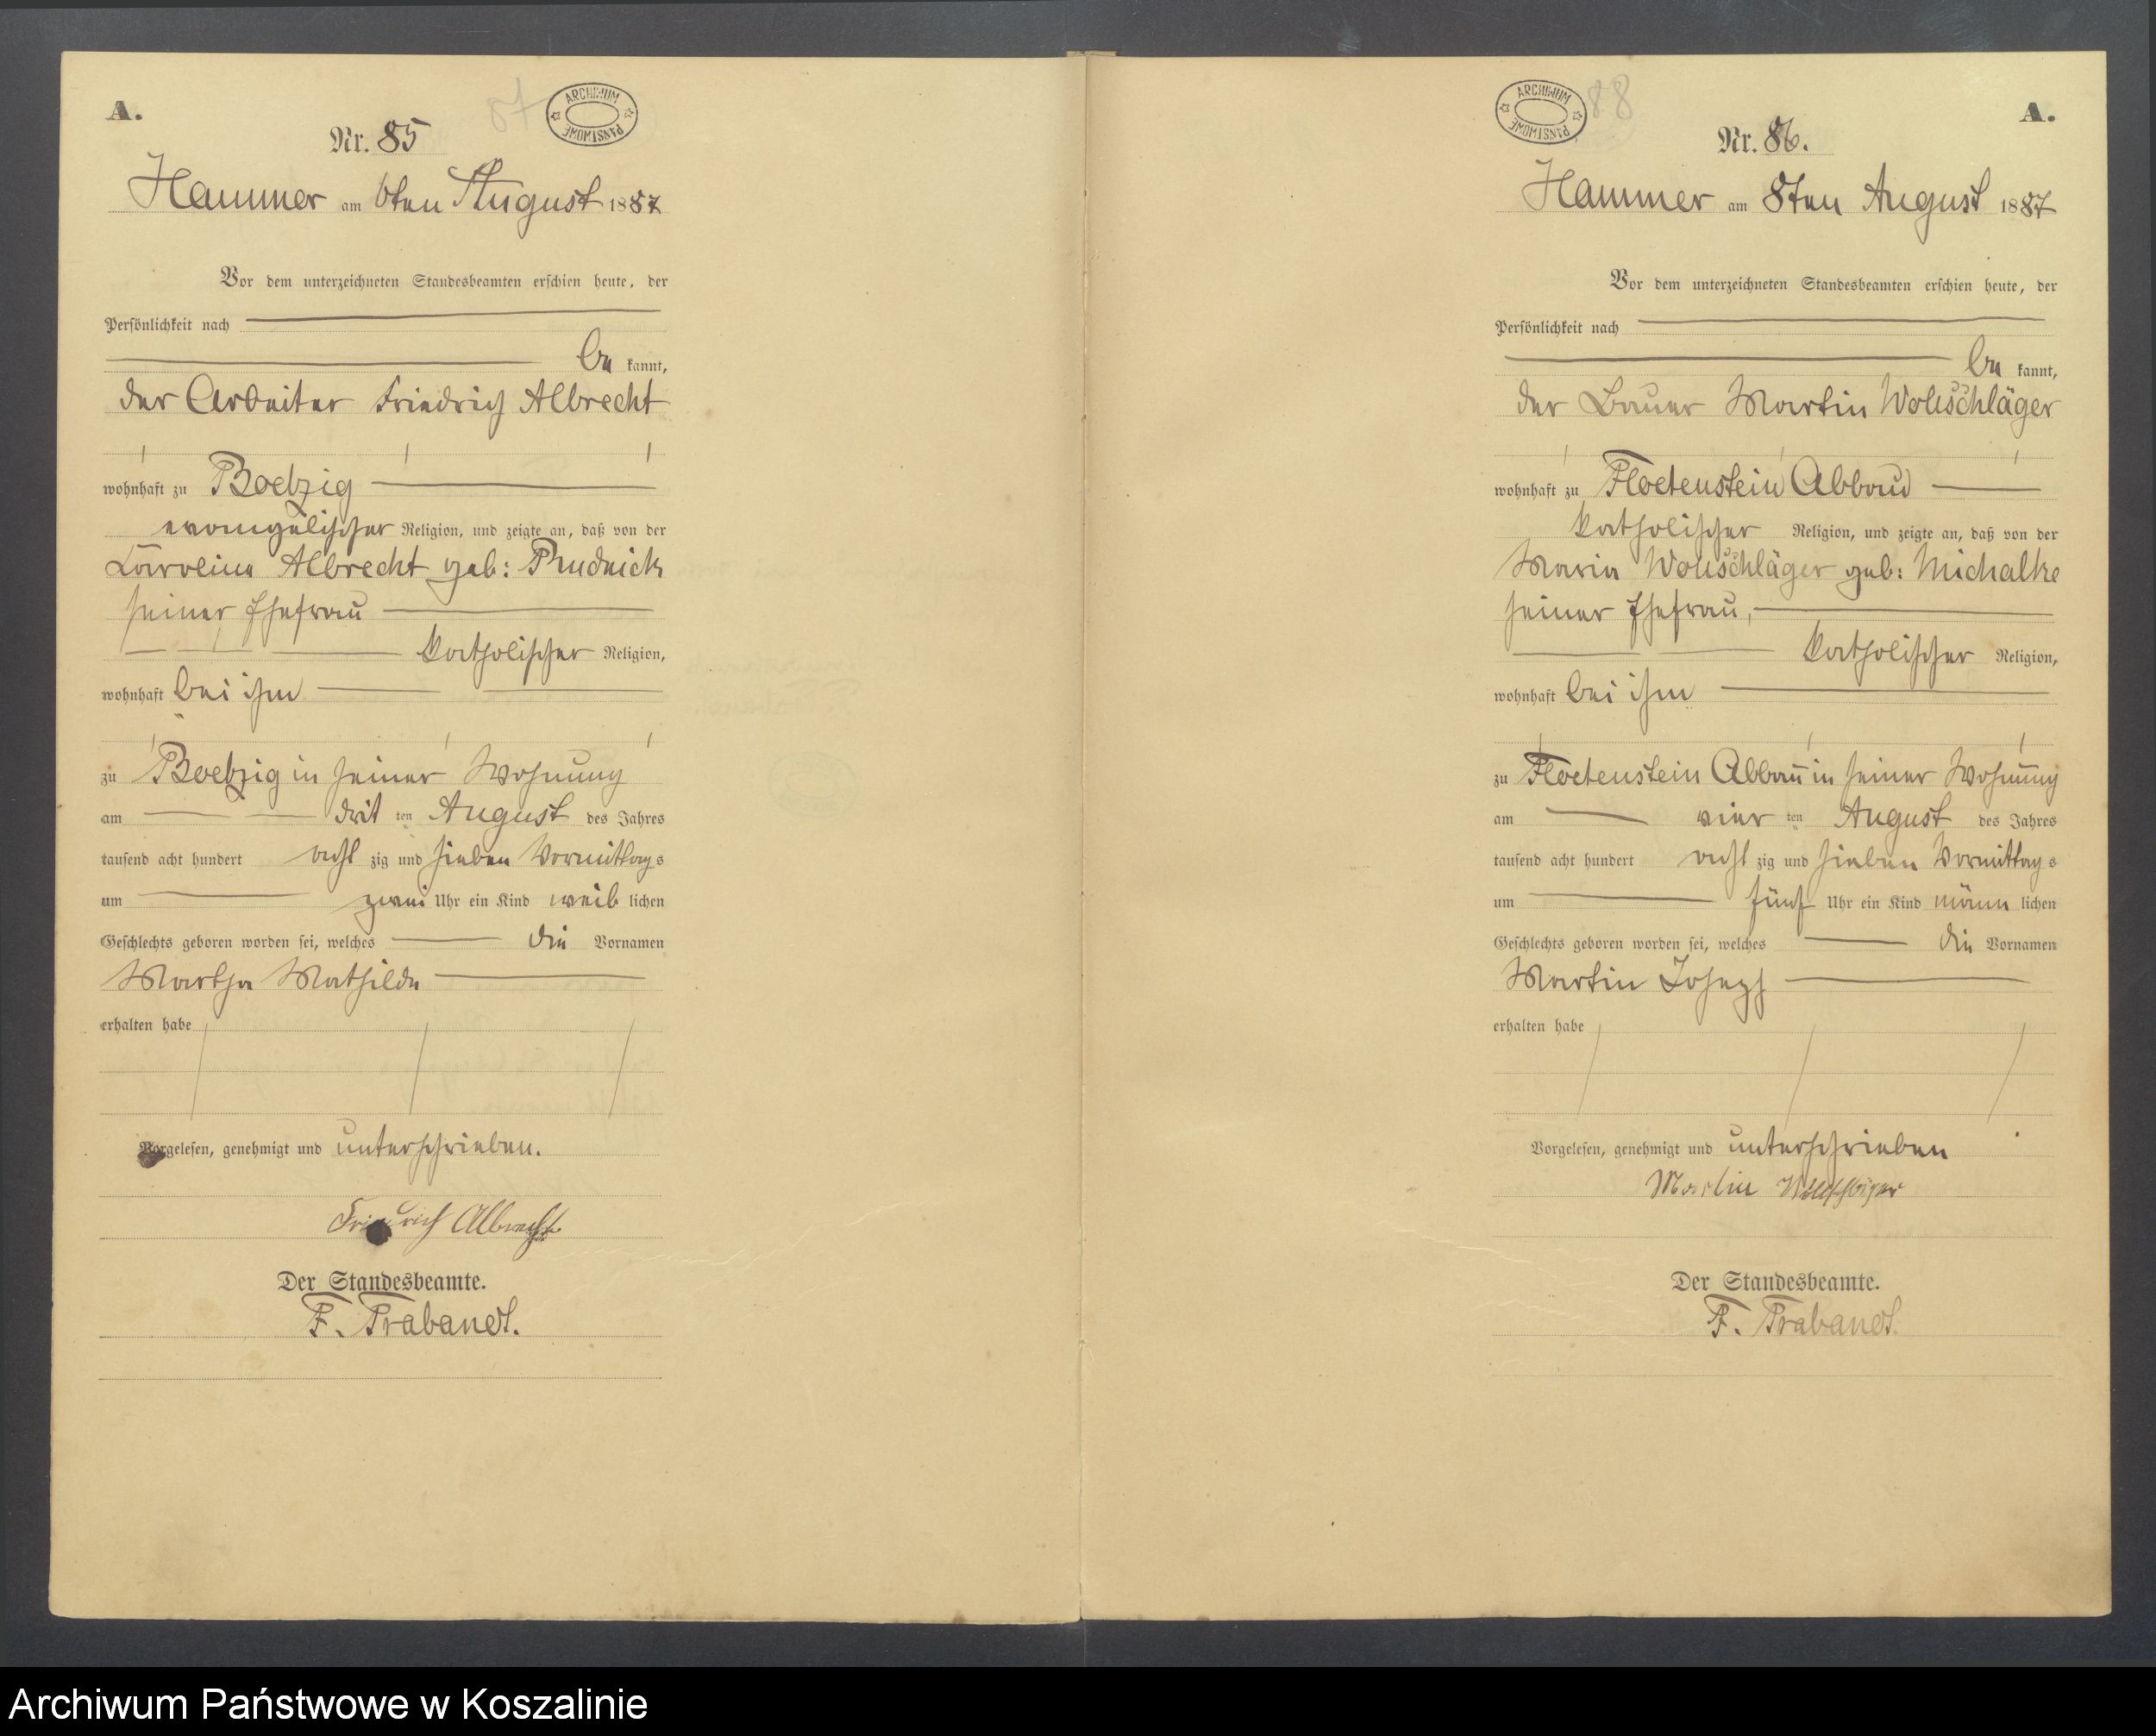 A.
87
ARCHIWUM PAŃSTWOWE
Nr. 85
Hammer am 6ten August 1887
Vor dem unterzeichneten Standesbeamten erschien heute, der
Persönlichkeit nach
be kannt,
der Arbeiter Friedrich Albrecht
wohnhaft zu Boelzig
evangelischer Religion, und zeigte an, daß von der
Caroline Albrecht geb: Prudnick
seiner Ehefrau
katholischer Religion,
wohnhaft bei ihm
zu Boelzig in seiner Wohnung
am drit ten August des Jahres
tausend acht hundert acht zig und sieben Vormittags
um zwei Uhr ein Kind weib lichen
Geschlechts geboren worden sei, welches die Vornamen
Martha Mathilde
erhalten habe
Vorgelesen, genehmigt und unterschrieben.
Friedrich Albrecht
Der Standesbeamte.
F. Trabandt.
ARCHIWUM PAŃSTWOWE
88
A.
Nr. 86.
Hammer am 8ten August 1887
Vor dem unterzeichneten Standesbeamten erschien heute, der
Persönlichkeit nach
be kannt,
der Bauer Martin Wollschläger
wohnhaft zu Floetenstein Abbau
katholischer Religion, und zeigte an, daß von der
Maria Wollschläger geb: Michalke
seiner Ehefrau,
katholischer Religion,
wohnhaft bei ihm
zu Floetenstein Abbau in seiner Wohnung
am vier ten August des Jahres
tausend acht hundert acht zig und sieben Vormittags
um fünf Uhr ein Kind männ lichen
Geschlechts geboren worden sei, welches die Vornamen
Martin Joseph
erhalten habe
Vorgelesen, genehmigt und unterschrieben
Martin Wollschläger
Der Standesbeamte.
F. Trabandt.
Archiwum Państwowe w Koszalinie